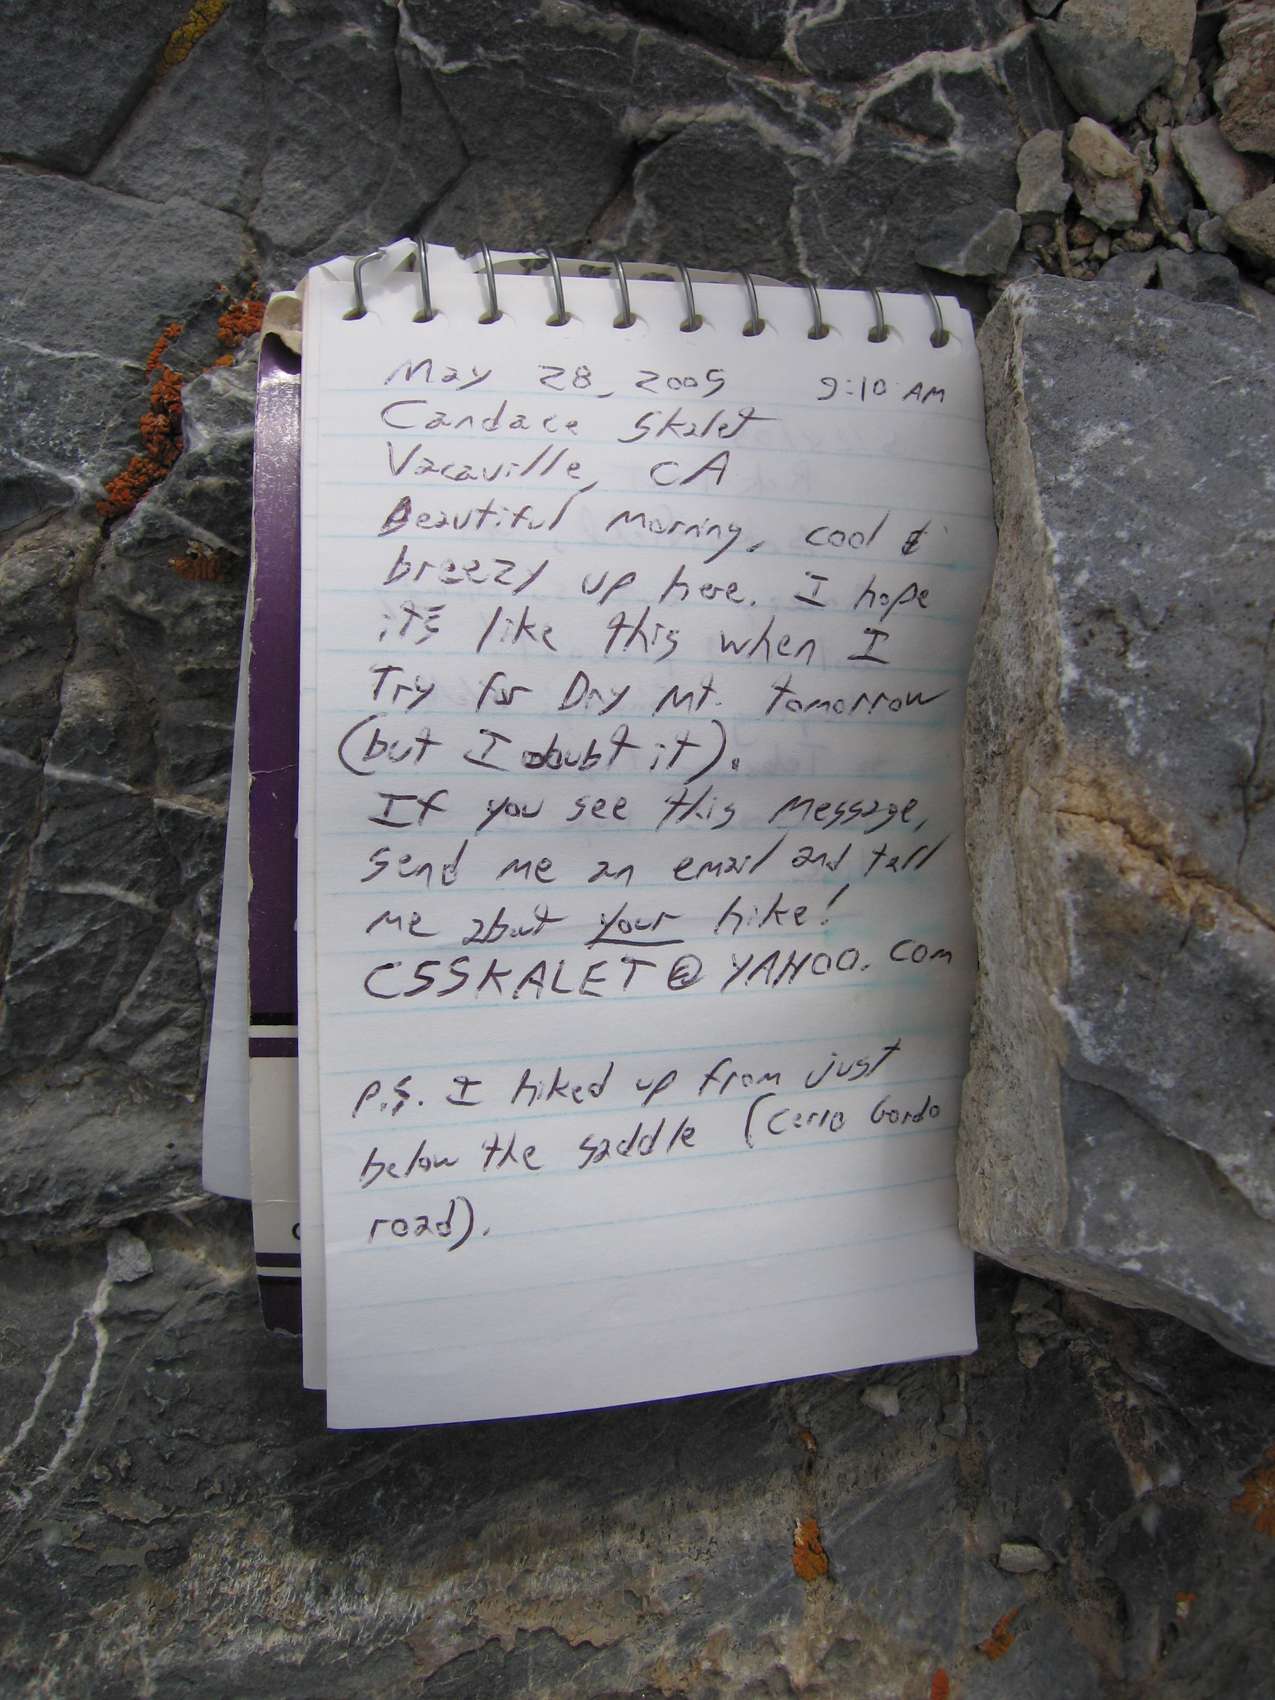 May 28, 2005 9:10 AM
Candace Skalet
Vacaville, CA
Beautiful morning, cool &
breezy up here. I hope
it's like this when I
Try for Dry Mt. tomorrow
(but I doubt it).
If you see this message,
send me an email and tell
me about your hike!
CSSKALET@YAHOO.com
P.S. I hiked up from just
below the saddle (Cerro Gordo
road).